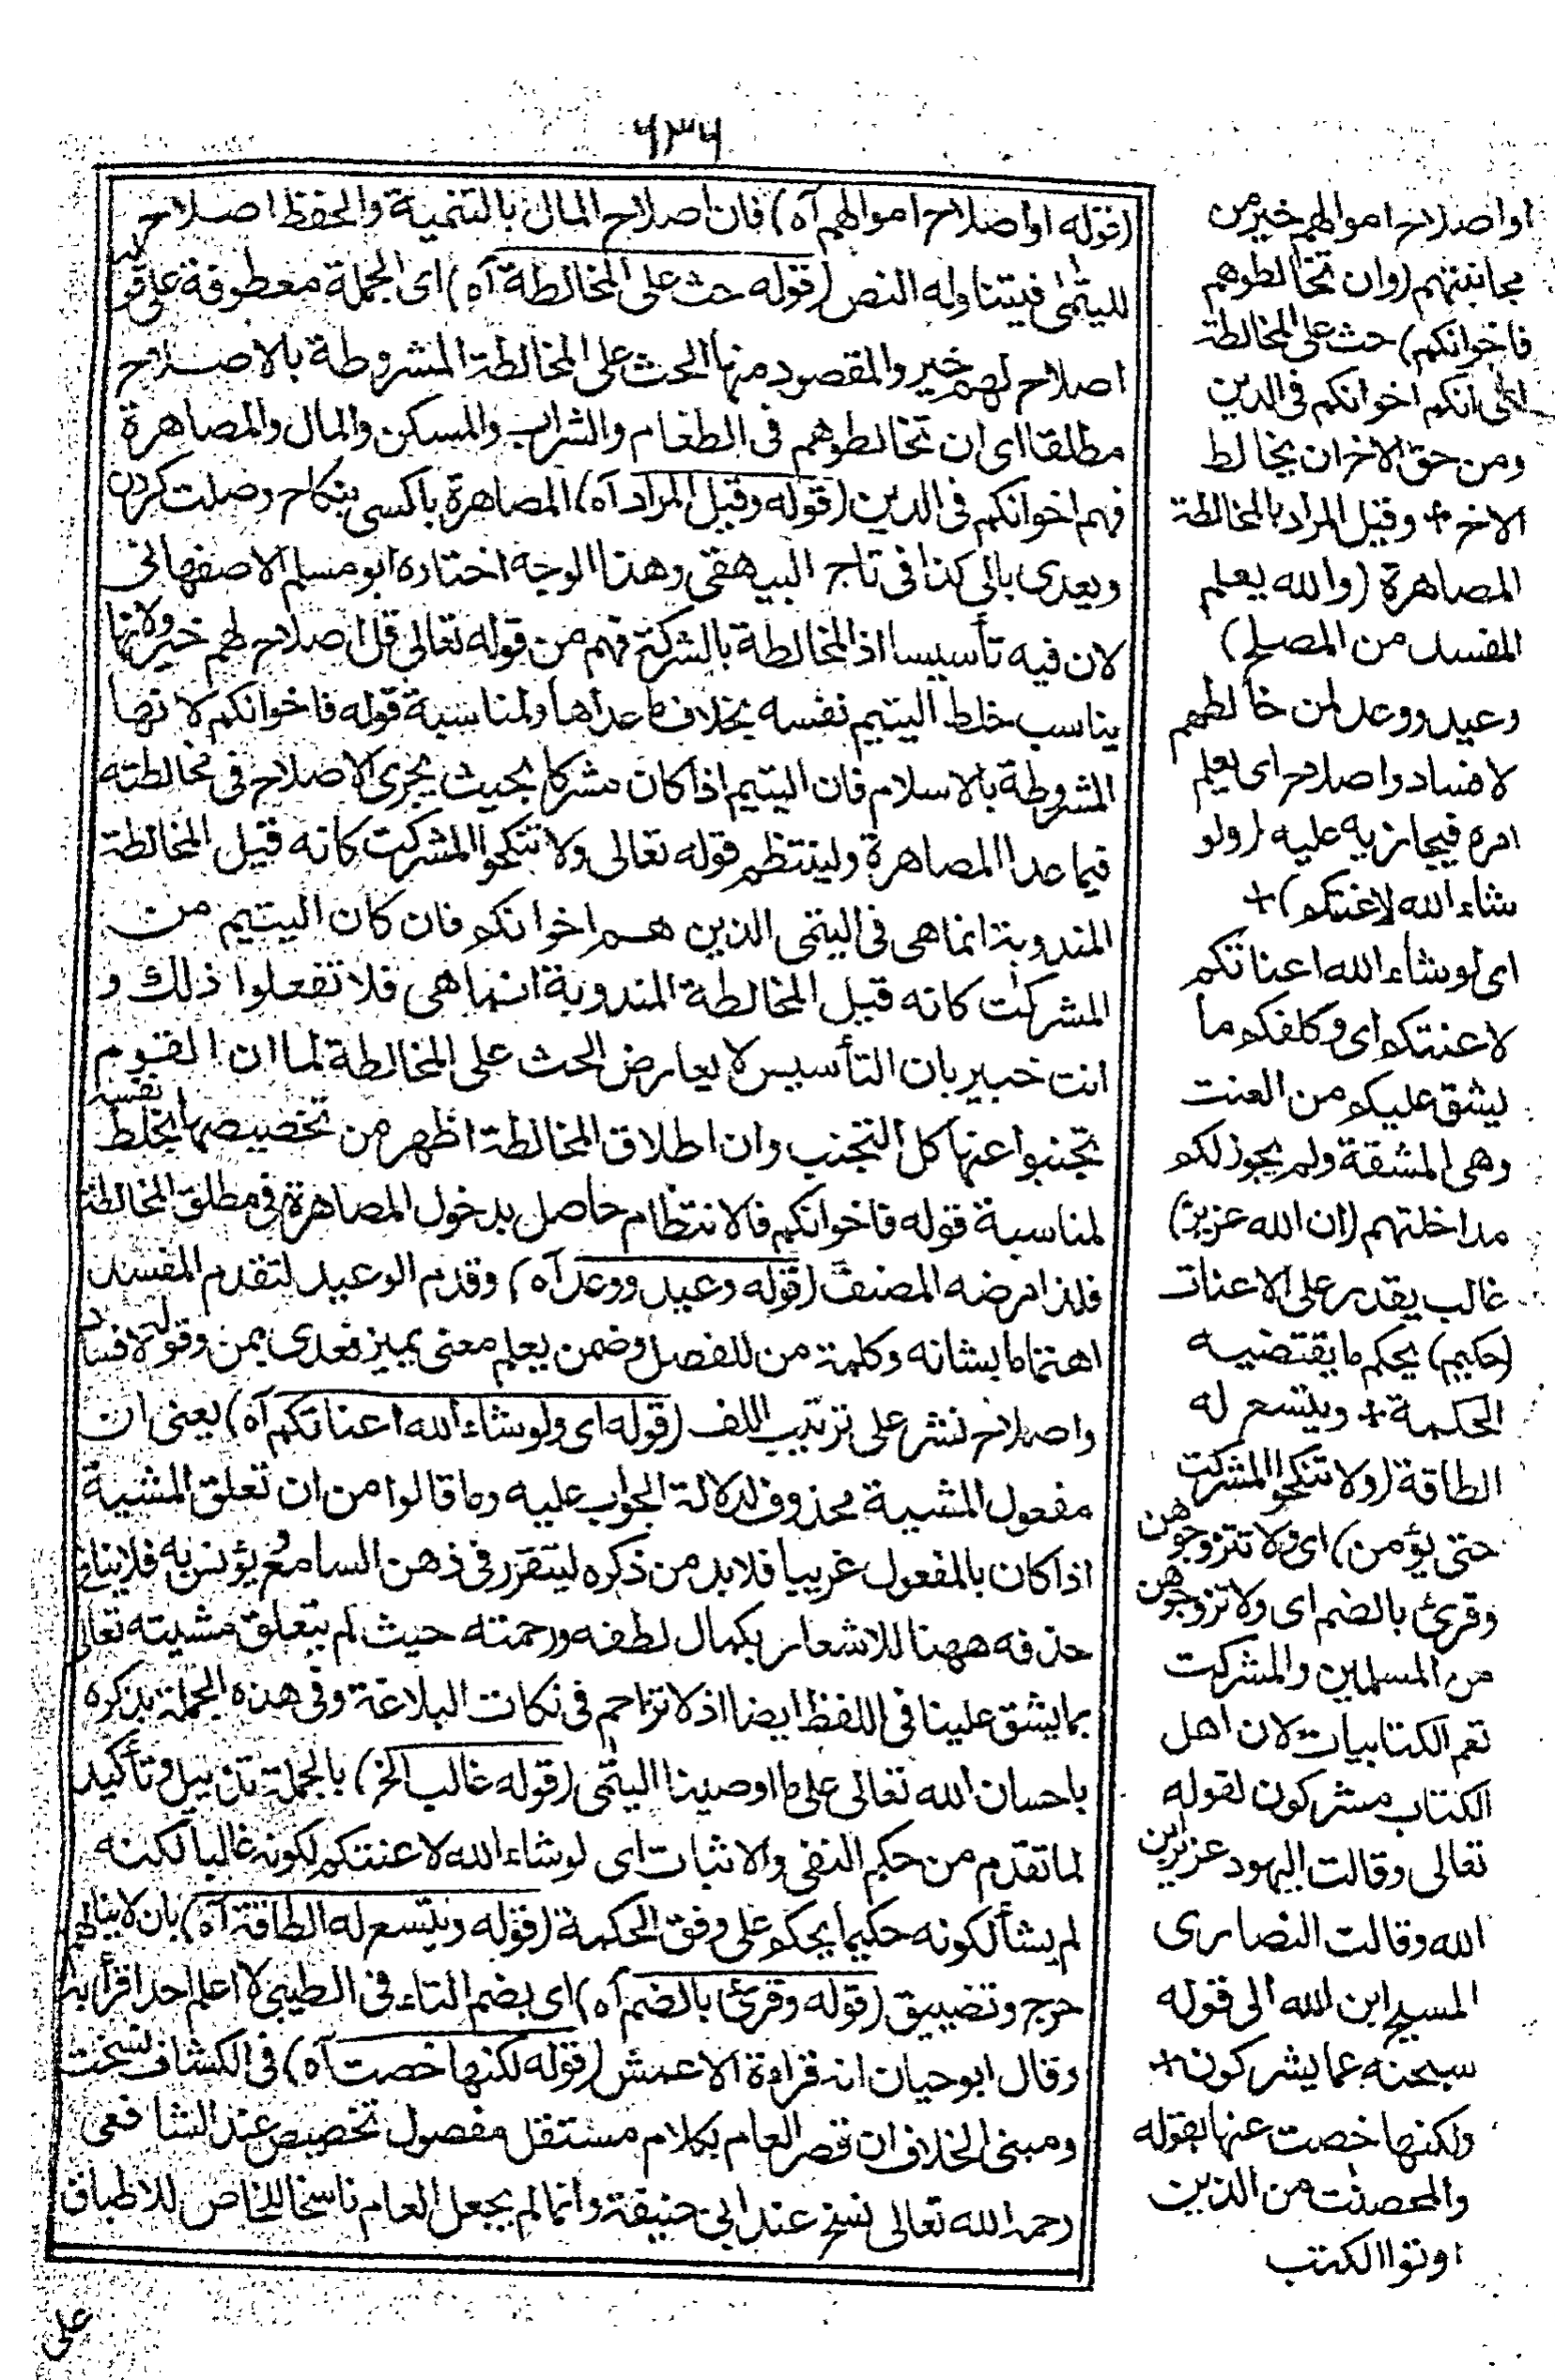 ٦٣٦
(قوله او اصلاح اموالهم آه) فان اصلاح المال بالتنمية والحفظ اصلاح
لليتمٰى فيتناوله النص (قوله حث على المخالطة آه) اى الجملة معطوفة على قوله
اصلاح لهم خير والمقصود منها الحث على المخالطة المشروطة بالاصلاح
مطلقا اى ان تخالطوهم فى الطعام والشراب والمسكن والمال والمصاهرة
فهم اخوانكم فى الدين (قوله وقيل المراد آه) المصاهرة باكسى بنكاح وصلت كردن
ويعدى بالى كذا فى تاج البيهقى وهذا الوجه اختاره ابو مسلم الاصفهانى
لان فيه تأسيسا اذ المخالطة بالشركة فهم من قوله تعالى قل اصلاح لهم خير ولانها
يناسب خلط اليتيم نفسه بخلاف ما عداها ولمناسبة قوله فاخوانكم لانها
المشروطة بالاسلام فان اليتيم اذا كان مشركا بحيث يجرى الاصلاح فى مخالطته
فيما عدا المصاهرة ولينتظم قوله تعالى ولا تنكحوا المشركت كانه قيل المخالطة
المندوبة انما هى فى اليتمى الذين هم اخوانكم فان كان اليتيم من
المشركٰت كانه قيل المخالطة المندوبة انما هى فلا تفعلوا ذلك و
انت خبير بان التأسيس لا يعارض الحث على المخالطة لما ان القوم
تجنبوا عنها كل التجنب وان اطلاق المخالطة اظهر من تخصيصها بخلط نفسه
لمناسبة قوله فاخوانكم فالانتظام حاصل بدخول المصاهرة فى مطلق المخالطة
فلذا مرضه المصنف (قوله وعيد ووعد آه) وقدم الوعيد لتقدم المفسد
اهتماما بشانه وكلمة من للفصل وضمن يعلم معنى يميز فعدى بمن وقوله لافساد
واصلاح نشر على ترتيب اللف (قوله اى ولو شاء الله اعناتكم آه) يعنى ان
مفعول المشية محذوف لدلالة الجواب عليه وما قالوا من ان تعلق المشية
اذا كان بالمفعول غريبا فلابد من ذكره ليتقرر فى ذهن السامع ويؤنس به فلا ينافى
حذفه ههنا للاشعار بكمال لطفه ورحمته حيث لم يتعلق مشيته تعالى
بما يشق علينا فى اللفظ ايضا اذ لا تزاحم فى نكات البلاغة وفى هذه الجملة تذكره
باحسان الله تعالى على ما اوصينا اليتمٰى (قوله غالب الخ) بالجملة تذييل وتأكيد
لما تقدم من حكم النفى والاثبات اى لو شاء الله لاعنتكم لكونه غالبا لكنه
لم يشأ لكونه حكيما يحكم على وفق الحكمة (قوله ويتسع له الطاقة آه) بان لا ينالهم
حرج وتضييق (قوله وقرئ بالضم آه) اى بضم التاء فى الطيبى لا اعلم احدا قرأ به
وقال ابو حيان انه قراءة الاعمش (قوله لكنها خصت آه) فى الكشاف نسخت
ومبنى الخلاف ان قصر العام بكلام مستقل مفصول تخصيص عند الشافعى
رحمه الله تعالى نسخ عند ابى حنيفة وانما لم يجعل العام ناسخا للخاص للاطباق
على
او اصلاح اموالهم خير من
مجانبتهم (وان تخالطوهم
فاخوانكم) حث على المخالطة
اى انكم اخوانكم فى الدين
ومن حق الاخ ان يخالط
الاخ + وقيل المراد بالمخالطة
المصاهرة (والله يعلم
المفسد من المصلح)
وعيد ووعد لمن خالطهم
لافساد واصلاح اى يعلم
امره فيجازيه عليه (ولو
شاء الله لاعنتكم) +
اى لو شاء الله اعناتكم
لاعنتكم اى وكلفكم ما
يشق عليكم من العنت
وهى المشقة ولم يجوز لكم
مداخلتهم (ان الله عزيز)
غالب يقدر على الاعنات
(حكيم) يحكم ما يقتضيه
الحكمة + ويتسع له
الطاقة (ولا تنكحوا المشركت
حتى يؤمن) اى ولا تتزوجوهن
وقرئ بالضم اى ولا تزوجوهن
من المسلمين والمشركت
تعم الكتابيات لان اهل
الكتاب مشركون لقوله
تعالى وقالت اليهود عزير ابن
الله وقالت النصارى
المسيح ابن الله الى قوله
سبحنه عما يشركون +
ولكنها خصت عنها بقوله
والمحصنٰت من الذين
اوتوا الكتب